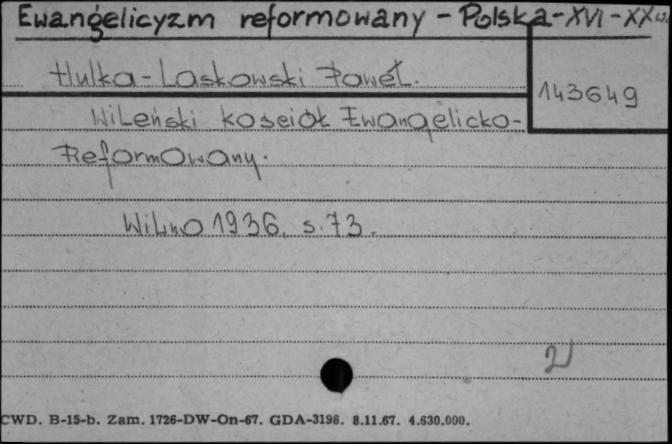 Ewangelicyzm reformowany - Polska - XVI - XX w.
Hulka-Laskowski Paweł.
143649
Wileński kościół Ewangelicko-
Reformowany.
Wilno 1936. s. 73.
2
CWD. B-15-b. Zam. 1726-DW-On-67. GDA-3198. 8.11.67. 4.630.000.